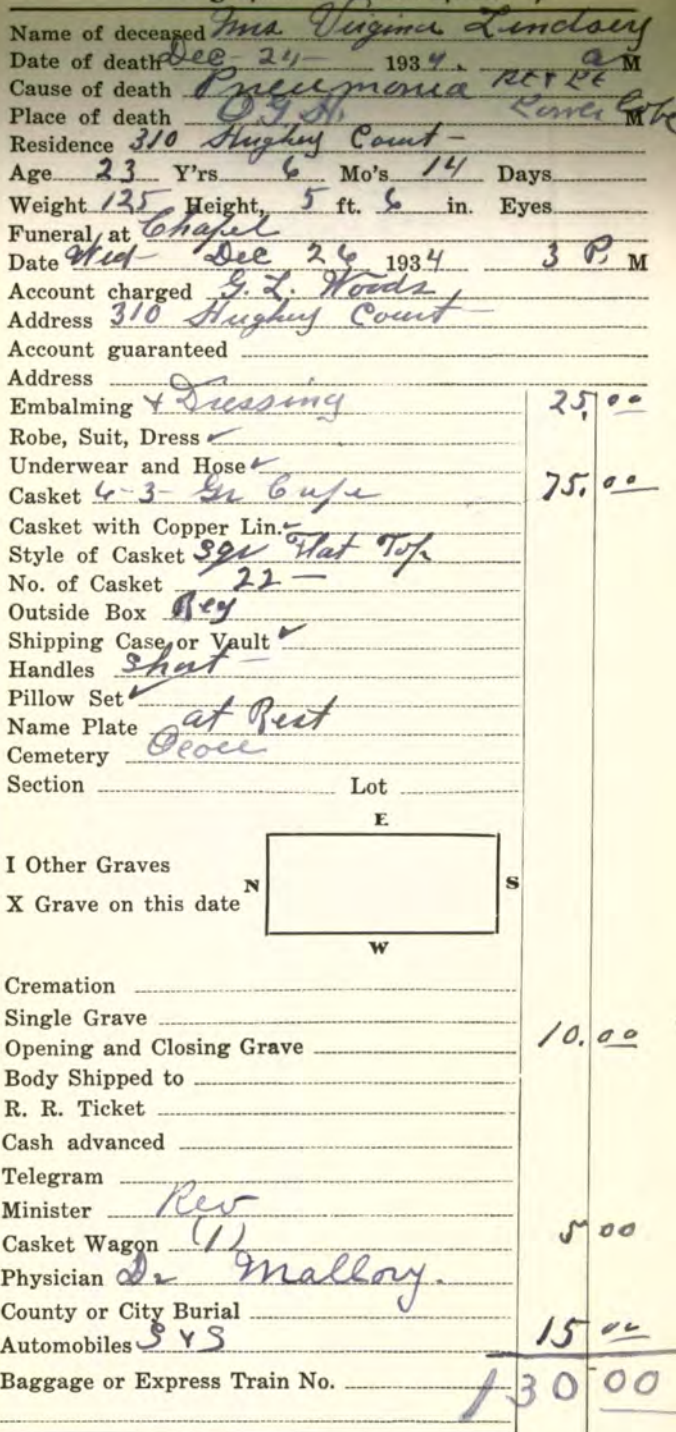 Name of deceased Mrs Virginia Lindsey
Date of death Dec 24 - 1934. a M
Cause of death Pneumonia Rt & Lt
Place of death O.G.H. Lower Lobe M
Residence 310 Hughey Court -
Age 23 Y'rs 6 Mo's 14 Days
Weight 125 Height, 5 ft. 6 in. Eyes
Funeral at Chapel
Date Wed - Dec 26 1934 3 P. M
Account charged G. L. Woods
Address 310 Hughey Court -
Account guaranteed
Address
Embalming & Dressing 25.00
Robe, Suit, Dress ✓
Underwear and Hose ✓
Casket 6-3- Gr Crepe 75.00
Casket with Copper Lin. ✓
Style of Casket Sqr Flat Top
No. of Casket 22 -
Outside Box Reg
Shipping Case or Vault ✓
Handles Short -
Pillow Set ✓
Name Plate at Rest
Cemetery Ocoee
Section Lot
E
I Other Graves
N S
X Grave on this date
W
Cremation
Single Grave
Opening and Closing Grave 10.00
Body Shipped to
R. R. Ticket
Cash advanced
Telegram
Minister Rev
Casket Wagon (1) 5 00
Physician Dr Mallory.
County or City Burial
Automobiles S & S 15 00
Baggage or Express Train No. 130 00